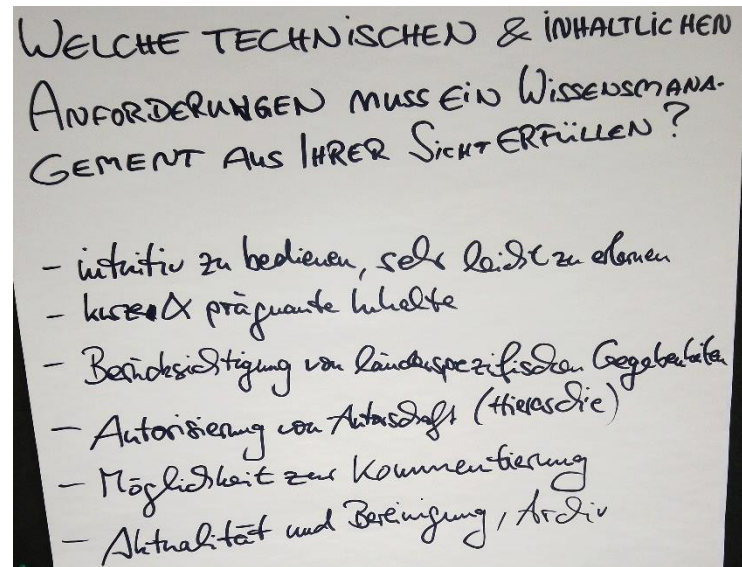 WELCHE TECHNISCHEN & INHALTLICHEN
ANFORDERUNGEN MUSS EIN WISSENSMANA-
GEMENT AUS IHRER SICHT ERFÜLLEN?
- intuitiv zu bedienen, sehr leicht zu erlernen
- kurze & prägnante Inhalte
- Berücksichtigung von länderspezifischen Gegebenheiten
- Autorisierung von Autorschaft (Hierarchie)
- Möglichkeit zur Kommentierung
- Aktualität und Bereinigung, Archiv